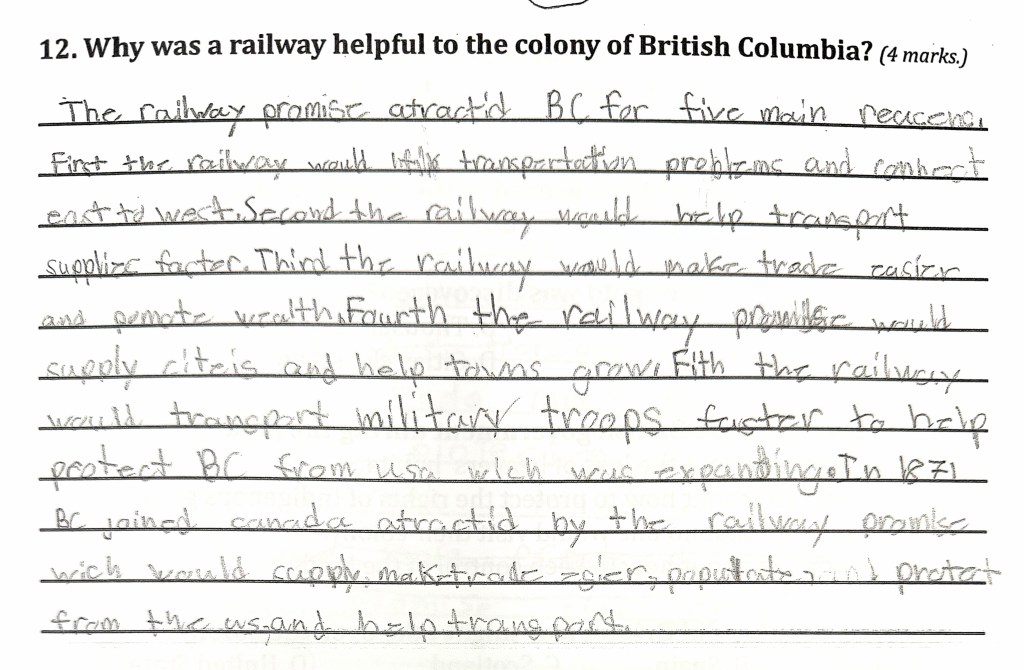 12. Why was a railway helpful to the colony of British Columbia? (4 marks.)
The railway promise atractid BC for five main reacens.
First the railway would transportation problems and connect
east to west. Second the railway would help transport
supplize faster. Third the railway would make trade easier
and pomote wealth. Fourth the railway promise would
supply citeis and help towns grow. Fith the railway
would transport military troops faster to help
protect BC from usa wich was expanding. In 1871
BC joined canada atractid by the railway promise
wich would supply, make trade esier, populate, and protet
from the us, and help transport.